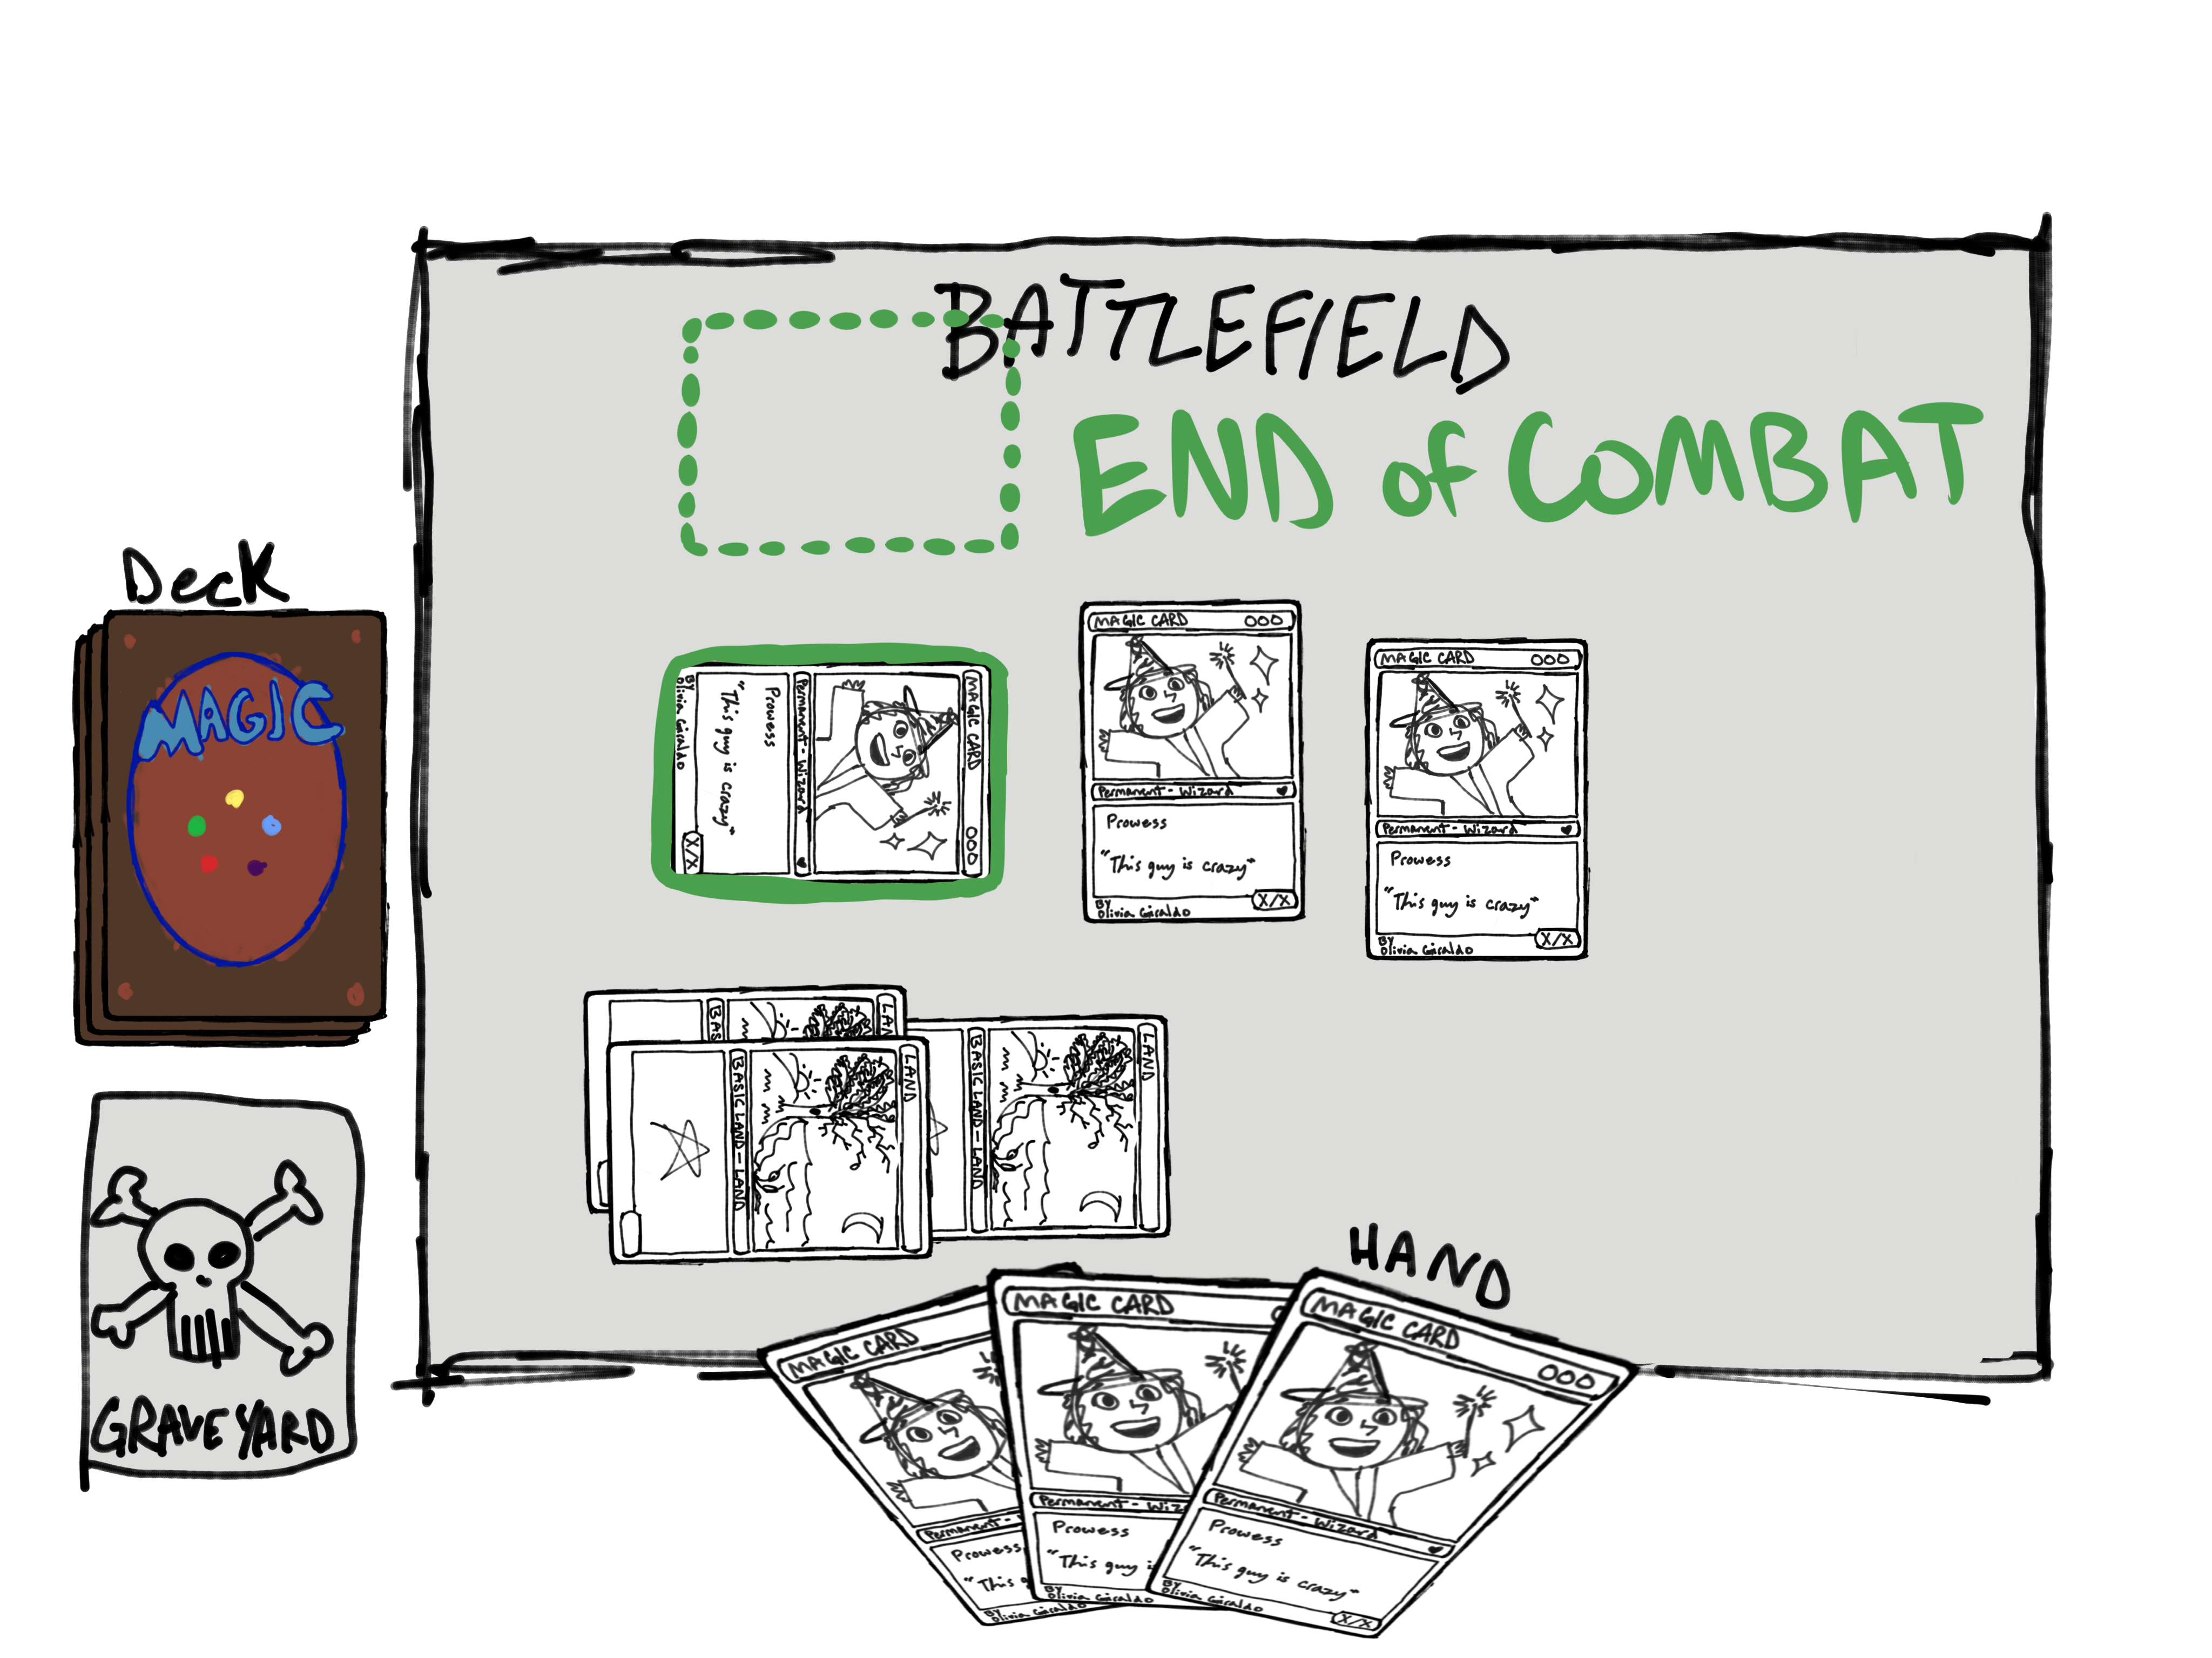 BATTLEFIELD
END of COMBAT
Deck
MAGIC
MAGIC CARD 000
Permanent - Wizard
Prowess
"This guy is crazy"
BY
Olivia Giraldo
X/X
MAGIC CARD 000
Permanent - Wizard
Prowess
"This guy is crazy"
X/X
BY
Olivia Giraldo
MAGIC CARD 000
Permanent - Wizard
Prowess
"This guy is crazy"
X/X
BY
Olivia Giraldo
LAN
BAS
LAND
BASIC LAND - LAND
LAND
BASIC LAND - LAND
GRAVEYARD
HAND
MAGIC CARD
Permanent -
Prowess
"This g
BY
Olivia Giraldo
MAGIC CARD
Permanent - Wiz
Prowess
"This guy i
BY
Olivia Giraldo
MAGIC CARD 000
Permanent - Wizard
Prowess
"This guy is crazy"
BY
Olivia Giraldo
X/X